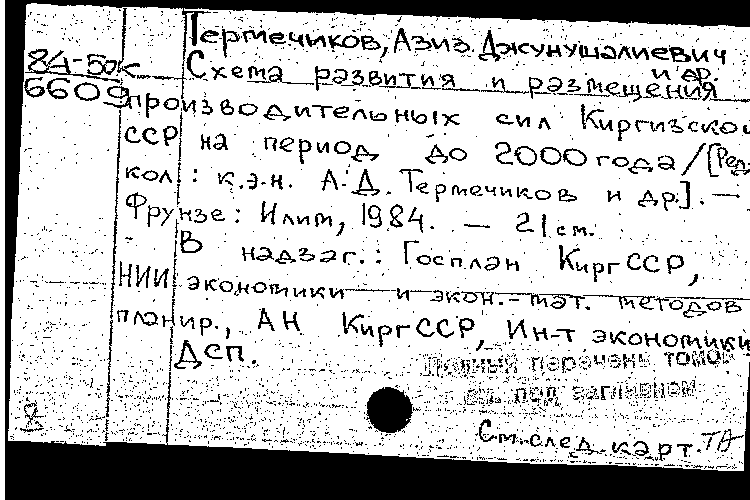 Термечиков, Азиз Джунушалиевич
и др.
84-50к
6609
Схема развития и размещения
производительных сил Киргизской
ССР на период до 2000 года / [Ред.
кол.: к.э.н. А.Д. Термечиков и др.]. —
Фрунзе: Илим, 1984. — 21 см.
В надзаг.: Госплан Кирг ССР,
НИИ экономики и экон.-мат. методов
планир., АН Кирг ССР, Ин-т экономики
ДСП.
Полный перечень томов
см. под заглавием
См. след. карт.